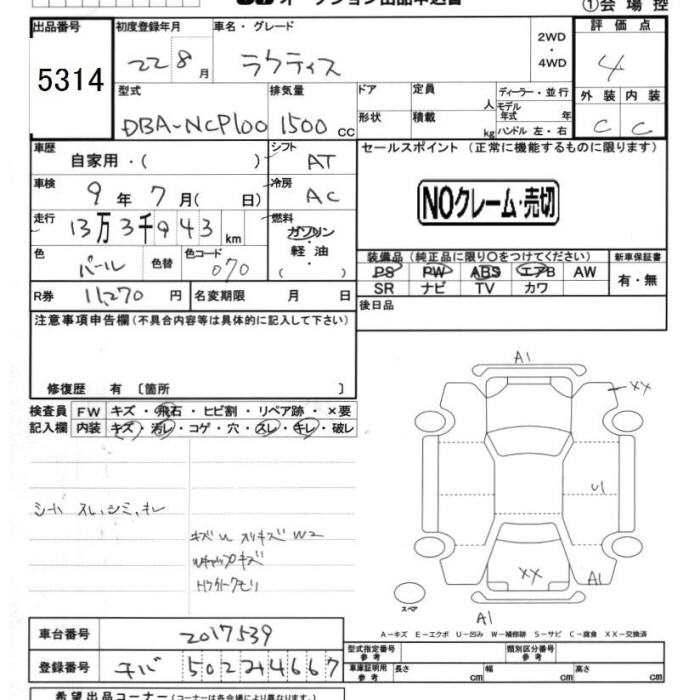 ①会場控
出品番号 初度登録年月 車名・グレード 2WD・4WD 評価点
5314 22 8月 ラクティス 4
型式 排気量 ドア 定員 人 ディーラー・並行 外装 内装
DBA-NCP100 1500cc 形状 積載 kg モデル年式 年 ハンドル 左・右 C C
車歴 自家用・( ) シフト AT セールスポイント (正常に機能するものに限ります)
車検 9年7月( 日) 冷房 AC NOクレーム・売切
走行 13万3千943km 燃料 ガソリン 軽油 ( )
色 パール 色替 色コード 070 装備品 (純正品に限り○をつけてください) 新車保証書
PS PW ABS エアB AW 有・無
SR ナビ TV カワ
R券 11,270円 名変期限 月 日 後日品
注意事項申告欄(不具合内容等は具体的に記入して下さい)
修復歴 有 〔箇所 〕
検査員 FW キズ・飛石・ヒビ割・リペア跡・×要
記入欄 内装 キズ・汚レ・コゲ・穴・スレ・キレ・破レ
シート スレ,シミ,キレ
A1
XX
U1
XX
A1
スペア
A1
A-キズ E-エクボ U-凹み W-補修跡 S-サビ C-腐食 XX-交換済
車台番号 2017539
登録番号 チバ 502 そ 4667
型式指定番号 参考 類別区分番号 参考
車庫証明用 参考 長さ cm 幅 cm 高さ cm
希望出品コーナー